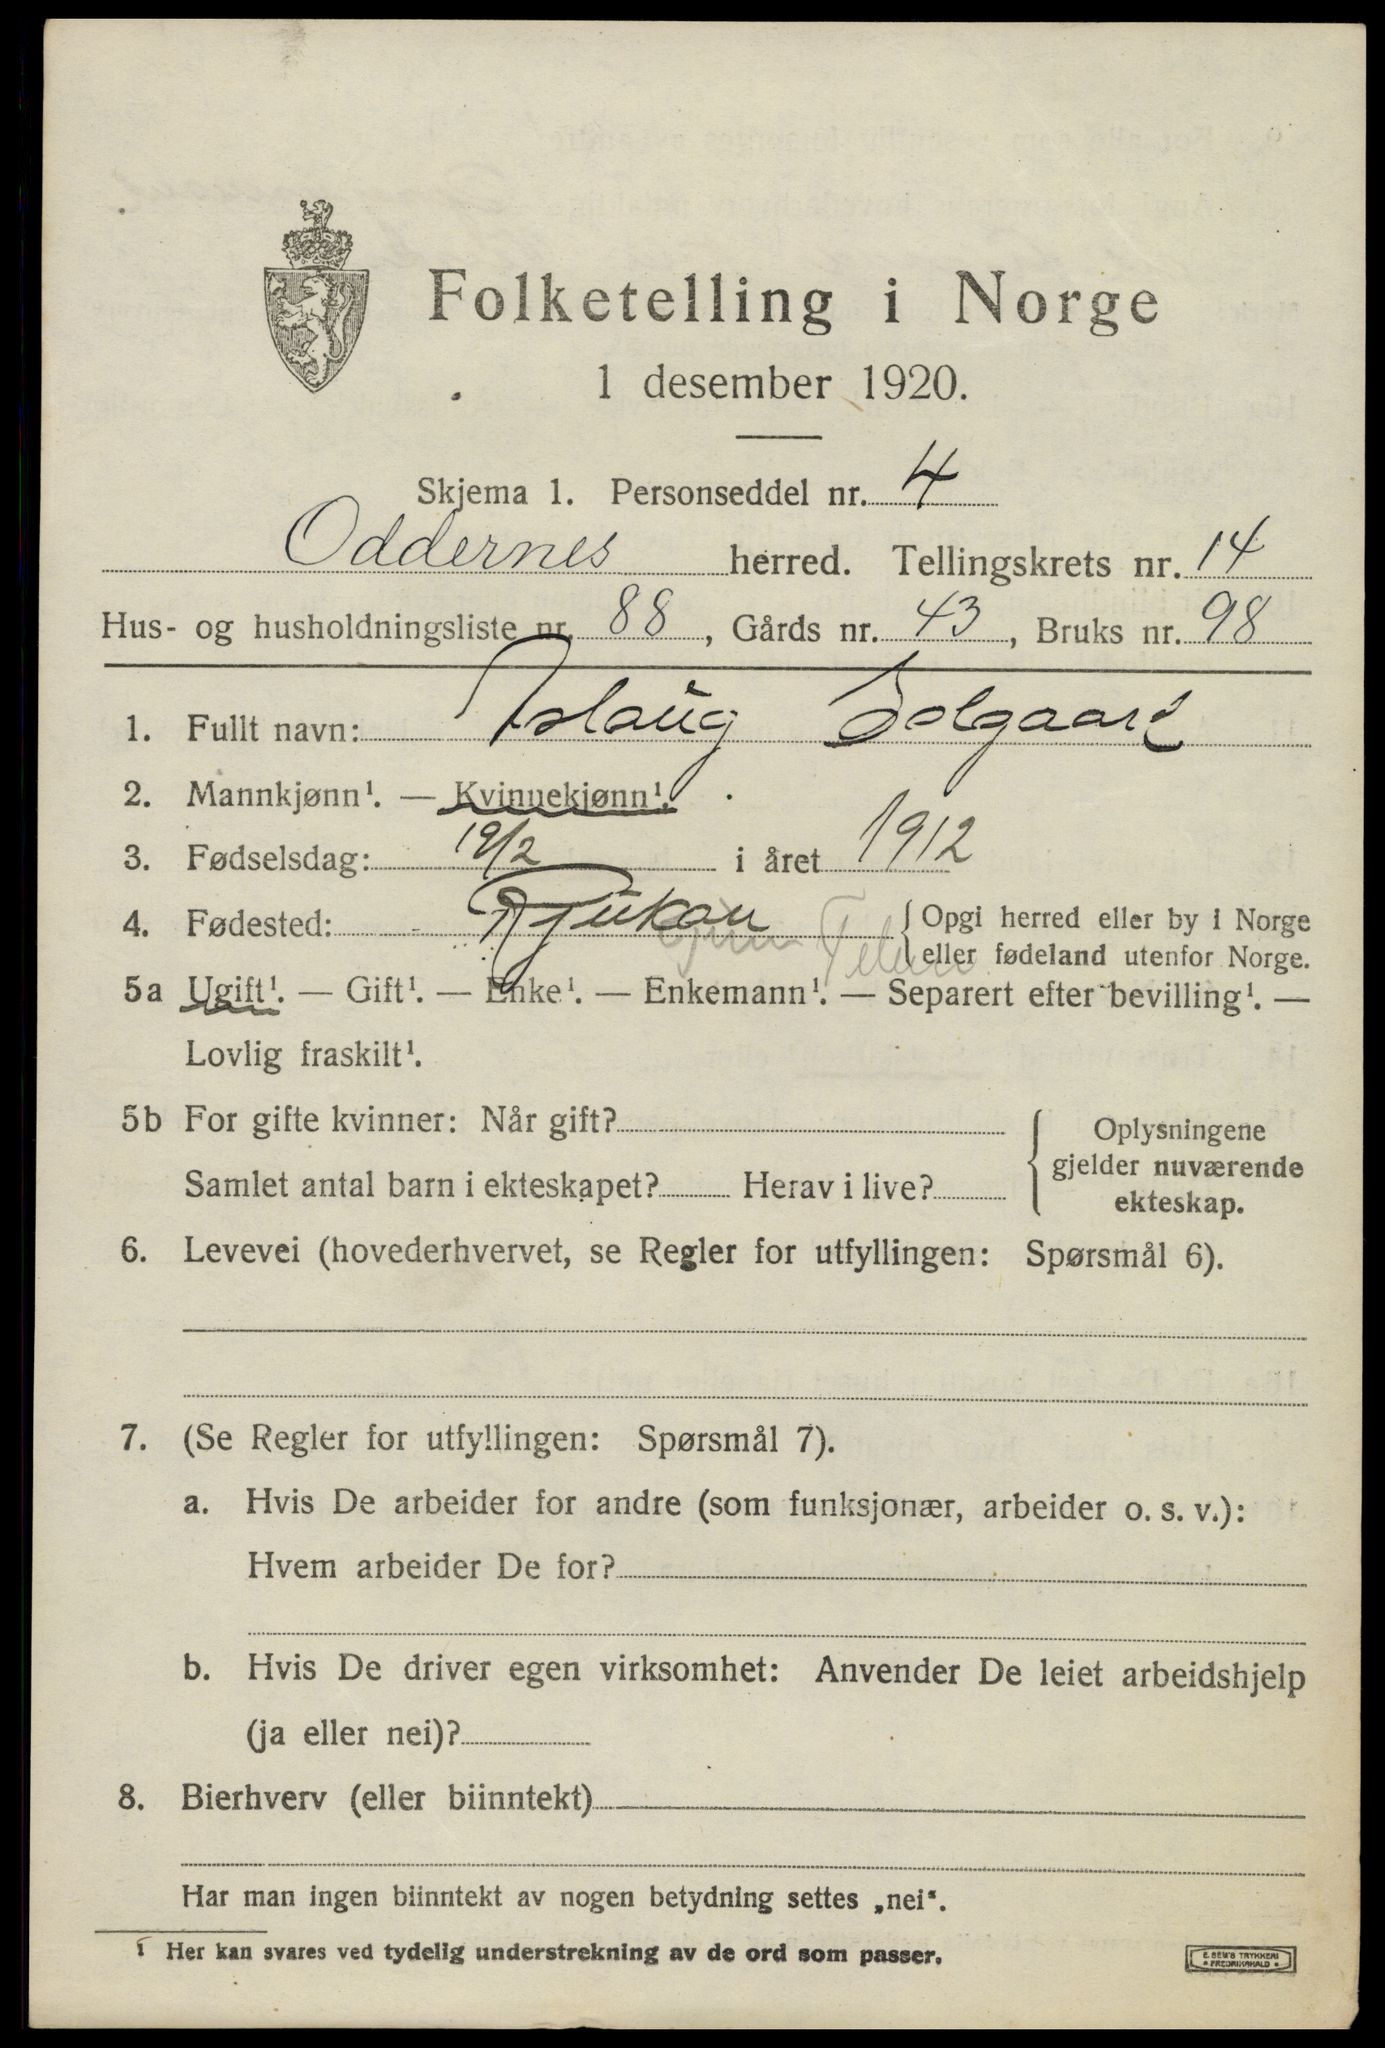 Folketelling i Norge
1 desember 1920.
Skjema 1. Personseddel nr. 4
Oddernes herred. Tellingskrets nr. 14
Hus- og husholdningsliste nr. 88, Gårds nr. 43, Bruks nr. 98
1. Fullt navn: Aslaug Solgaard
2. Mannkjønn¹. — Kvinnekjønn¹.
3. Fødselsdag: 19/2 i året 1912
4. Fødested: Rjukan { Opgi herred eller by i Norge
Tinn Telem { eller fødeland utenfor Norge.
5a Ugift¹. — Gift¹. — Enke¹. — Enkemann¹. — Separert efter bevilling¹. —
Lovlig fraskilt¹.
5b For gifte kvinner: Når gift? { Oplysningene
gjelder nuværende
Samlet antal barn i ekteskapet? Herav i live?
ekteskap.
6. Levevei (hovederhvervet, se Regler for utfyllingen: Spørsmål 6).
7. (Se Regler for utfyllingen: Spørsmål 7).
a. Hvis De arbeider for andre (som funksjonær, arbeider o. s. v.):
Hvem arbeider De for?
b. Hvis De driver egen virksomhet: Anvender De leiet arbeidshjelp
(ja eller nei)?
8. Bierhverv (eller biinntekt)
Har man ingen biinntekt av nogen betydning settes „nei“.
1 Her kan svares ved tydelig understrekning av de ord som passer.
E. SEM'S TRYKKERI
• FREDRIKSHALD •